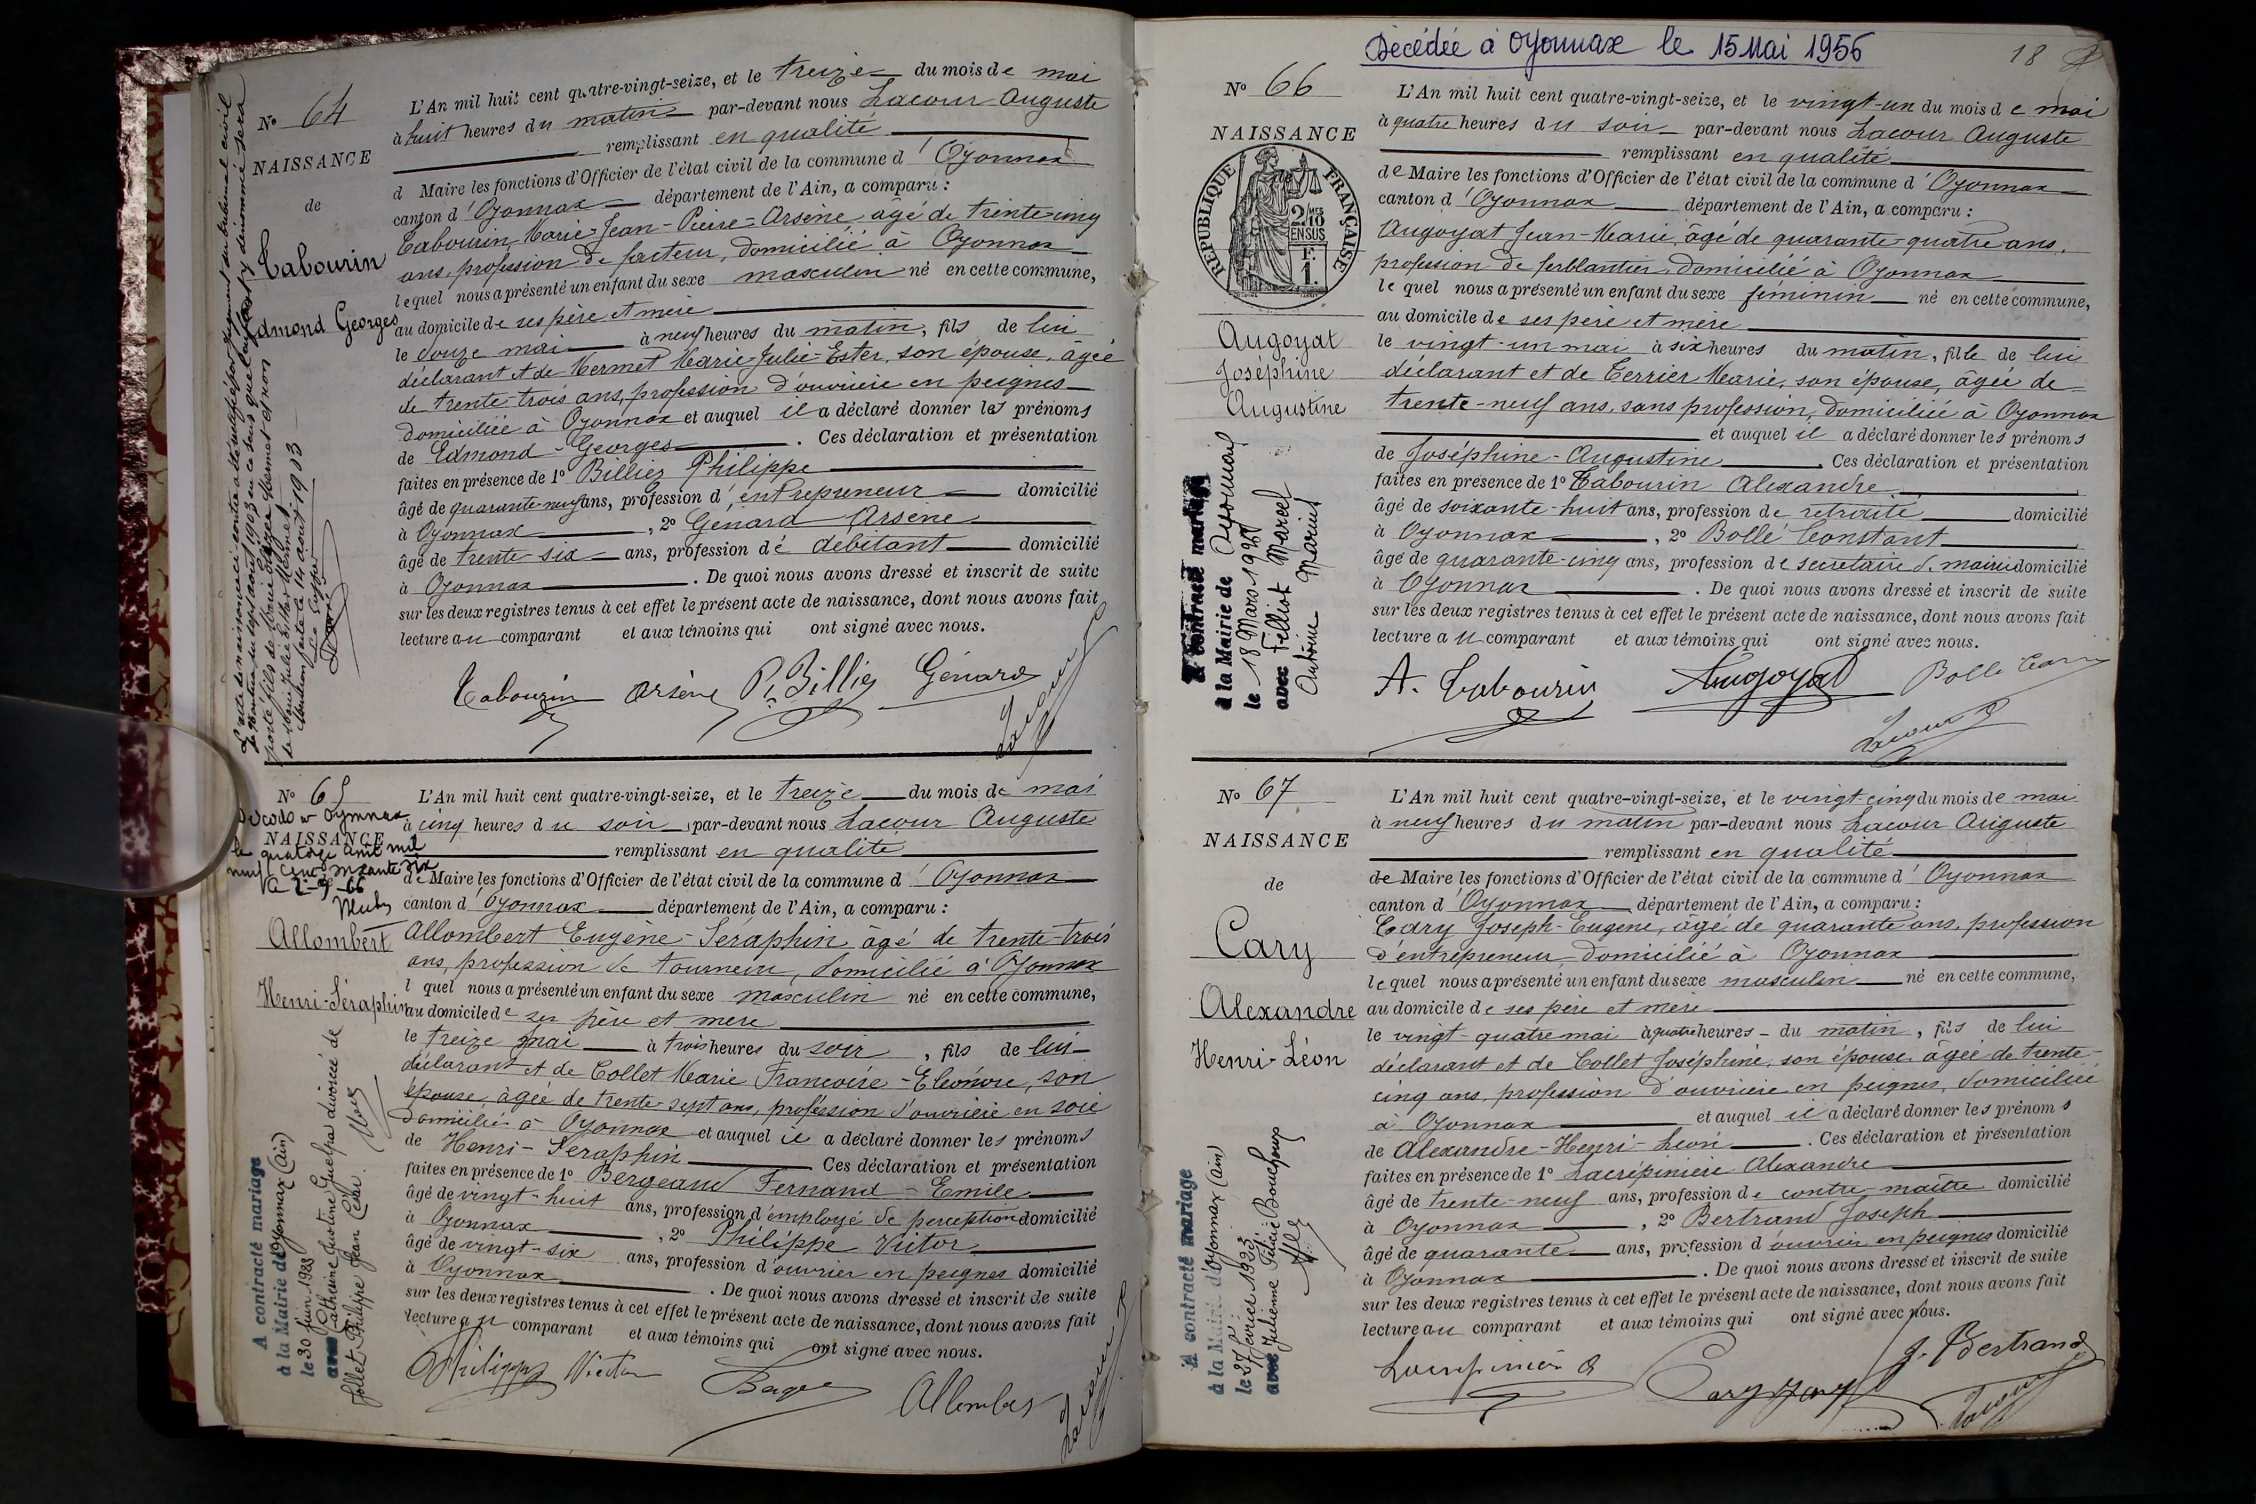 N° 64
NAISSANCE
de
Tabourin
Edmond Georges
L'An mil huit cent quatre-vingt-seize, et le treize du mois de mai
à huit heures du matin par-devant nous Lacour Auguste
remplissant en qualité
d Maire les fonctions d'Officier de l'état civil de la commune d'Oyonnax
canton d'Oyonnax département de l'Ain, a comparu :
Tabourin Marie-Jean-Pierre-Arsène âgé de trente-cinq
ans, profession de facteur, domicilié à Oyonnax
lequel nous a présenté un enfant du sexe masculin né en cette commune,
au domicile de ses père et mère
le douze mai à neuf heures du matin, fils de lui
déclarant et de Mermet Marie-Julie-Ester, son épouse, âgée
de trente-trois ans, profession d'ouvrière en peignes
domiciliée à Oyonnax et auquel il a déclaré donner les prénoms
de Edmond-Georges. Ces déclaration et présentation
faites en présence de 1° Billiez Philippe
âgé de quarante-neuf ans, profession d'entrepreneur domicilié
à Oyonnax, 2° Génard Arsène
âgé de trente-six ans, profession dé débitant domicilié
à Oyonnax. De quoi nous avons dressé et inscrit de suite
sur les deux registres tenus à cet effet le présent acte de naissance, dont nous avons fait
lecture au comparant et aux témoins qui ont signé avec nous.
Tabourin Arsène P. Billiez Génard
Lacour
N° 65
Décédé à Oyonnax
NAISSANCE
le quatorze août mil
neuf cent soixante six
Allombert
Henri-Séraphin
A contracté mariage
à la Mairie d'Oyonnax (Ain)
le 30 juin 1928
avec Catherine Justine Guelpa divorcée de
Jollet Philippe Jean César.
L'An mil huit cent quatre-vingt-seize, et le treize du mois de mai
à cinq heures du soir, par-devant nous Lacour Auguste
remplissant en qualité
de Maire les fonctions d'Officier de l'état civil de la commune d'Oyonnax
canton d'Oyonnax département de l'Ain, a comparu :
Allombert Eugène-Seraphin âgé de trente-trois
ans, profession de tourneur, domicilié à Oyonnax
l quel nous a présenté un enfant du sexe masculin né en cette commune,
au domicile de ses père et mère
le treize mai à trois heures du soir, fils de lui
déclarant et de Collet Marie Françoise-Eléonore, son
épouse, âgée de trente-sept ans, profession d'ouvrière en soie
domiciliée à Oyonnax et auquel il a déclaré donner les prénoms
de Henri-Seraphin Ces déclaration et présentation
faites en présence de 1° Bergeaud Fernand-Emile
âgé de vingt-huit ans, profession d'employé de perception domicilié
à Oyonnax, 2° Philippe Victor
âgé de vingt-six ans, profession d'ouvrier en peignes domicilié
à Oyonnax. De quoi nous avons dressé et inscrit de suite
sur les deux registres tenus à cet effet le présent acte de naissance, dont nous avons fait
lecture au comparant et aux témoins qui ont signé avec nous.
Philippe Victor
Allombert
Lacour
Décédée à Oyonnax le 15 Mai 1956
18
N° 66
NAISSANCE
de
RÉPUBLIQUE FRANÇAISE
2/10 MES
EN SUS
1 F.
Augoyat
Joséphine
Augustine
A contracté mariage
à la Mairie de Oyonnax
le 18 Mars 1920
avec Felliot Marcel
Antoine Marius
L'An mil huit cent quatre-vingt-seize, et le vingt-un du mois de mai
à quatre heures du soir par-devant nous Lacour Auguste
remplissant en qualité
de Maire les fonctions d'Officier de l'état civil de la commune d'Oyonnax
canton d'Oyonnax département de l'Ain, a comparu :
Augoyat Jean-Marie, âgé de quarante-quatre ans,
profession de ferblantier, domicilié à Oyonnax
lequel nous a présenté un enfant du sexe féminin né en cette commune,
au domicile de ses père et mère
le vingt-un mai à six heures du matin, fille de lui
déclarant et de Terrier Marie, son épouse, âgée de
trente-neuf ans, sans profession, domiciliée à Oyonnax
et auquel il a déclaré donner les prénoms
de Joséphine-Augustine. Ces déclaration et présentation
faites en présence de 1° Tabourin Alexandre
âgé de soixante-huit ans, profession de retraité domicilié
à Oyonnax, 2° Bollé Constant
âgé de quarante-cinq ans, profession de secrétaire de mairie domicilié
à Oyonnax. De quoi nous avons dressé et inscrit de suite
sur les deux registres tenus à cet effet le présent acte de naissance, dont nous avons fait
lecture au comparant et aux témoins qui ont signé avec nous.
A. Tabourin Augoyat Bollé
Lacour
N° 67
NAISSANCE
de
Cary
Alexandre
Henri-Léon
A contracté mariage
à la Mairie d'Oyonnax (Ain)
le 27 Février 1923
avec Julienne Félicie Bouchoux
L'An mil huit cent quatre-vingt-seize, et le vingt-cinq du mois de mai
à neuf heures du matin par-devant nous Lacour Auguste
remplissant en qualité
de Maire les fonctions d'Officier de l'état civil de la commune d'Oyonnax
canton d'Oyonnax, département de l'Ain, a comparu :
Cary Joseph-Eugène, âgé de quarante ans, profession
d'entrepreneur, domicilié à Oyonnax
lequel nous a présenté un enfant du sexe masculin né en cette commune,
au domicile de ses père et mère
le vingt-quatre mai à quatre heures du matin, fils de lui
déclarant et de Collet Joséphine, son épouse, âgée de trente-
cinq ans, profession d'ouvrière en peignes, domiciliée
à Oyonnax et auquel il a déclaré donner les prénoms
de Alexandre-Henri-Léon. Ces déclaration et présentation
faites en présence de 1° Lacrépinière Alexandre
âgé de trente-neuf ans, profession de contre-maître domicilié
à Oyonnax, 2° Bertrand Joseph
âgé de quarante ans, profession d'ouvrier en peignes domicilié
à Oyonnax. De quoi nous avons dressé et inscrit de suite
sur les deux registres tenus à cet effet le présent acte de naissance, dont nous avons fait
lecture au comparant et aux témoins qui ont signé avec nous.
J. Bertrand
Lacour